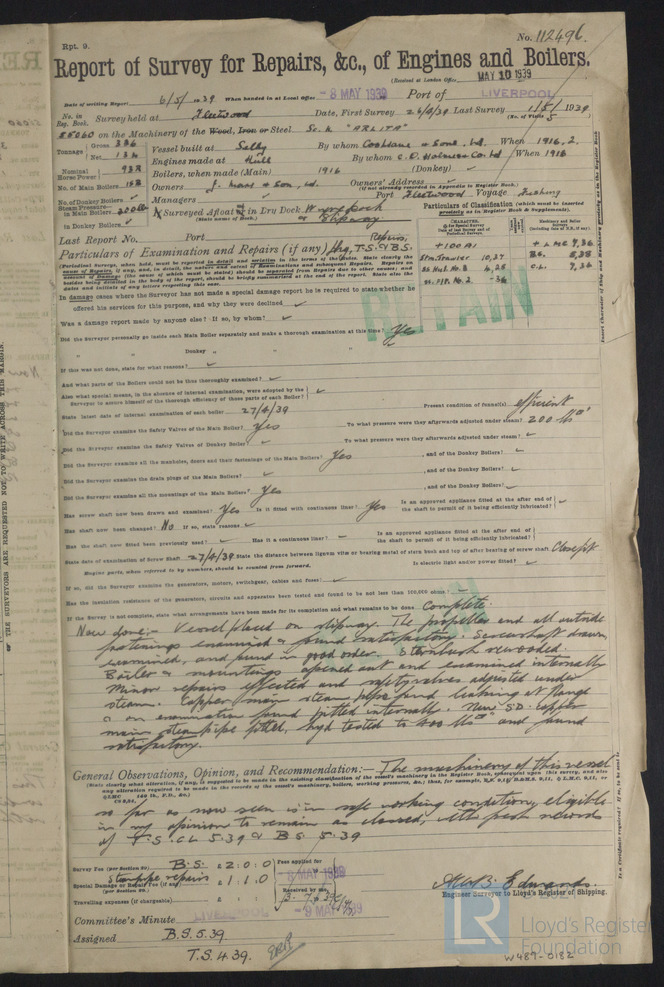 Rpt. 9.
No. 112496.
Report of Survey for Repairs, &c., of Engines and Boilers.
(Received at London Office MAY 10 1939
Date of writing Report 6/5/1939 When handed in at Local Office - 8 MAY 1939 Port of LIVERPOOL
No. in Reg. Book. Survey held at Fleetwood Date, First Survey Last Survey 1/5/1939
(No. of Visits 5)
on the Machinery of the Wood, Iron or Steel Sc. K "ARLITA"
Tonnage Gross 326 Net 126
Vessel built at Selby By whom Cochrane & Sons Ld. When 1916, 2.
Engines made at Hull By whom C. D. Holmes Co Ltd When 1916
Nominal Horse Power 93R
Boilers, when made (Main) 1916 (Donkey) ✓
No. of Main Boilers 1SB
Owners J. & Son, Ld. Owners' Address ✓
(if not already recorded in Appendix to Register Book.)
No. of Donkey Boilers ✓
Managers Port Fleetwood Voyage Fishing
Steam Pressure in Main Boilers 200 lbs
in Donkey Boilers ✓
If Surveyed Afloat or in Dry Dock Wyre Dock
(State name of Dock.) Slipway
Particulars of Classification (which must be inserted precisely as in Register Book & Supplements).
Last Report No. Port
Particulars of Examination and Repairs (if any) Repairs, T.S. & B.S.
+ 100 A1
Stm Trawler 10,37
SS. Hull No. 3 4,28
+ LMC 9,36
BS. 5,38
CL. 9,36
RETAIN
In damage cases where the Surveyor has not made a special damage report he is required to state whether he
offered his services for this purpose, and why they were declined ✓
Was a damage report made by anyone else? If so, by whom? ✓
Did the Surveyor personally go inside each Main Boiler separately and make a thorough examination at this time? Yes
" " Donkey " " " " ✓
If this was not done, state for what reasons? ✓
And what parts of the Boilers could not be thus thoroughly examined? ✓
Also what special means, in the absence of internal examination, were adopted by the
Surveyor to assure himself of the thorough efficiency of those parts of each Boiler? ✓
State latest date of internal examination of each boiler 27/4/39 Present condition of funnel(s) efficient
Did the Surveyor examine the Safety Valves of the Main Boiler? Yes To what pressure were they afterwards adjusted under steam? 200 lbs
Did the Surveyor examine the Safety Valves of Donkey Boiler? ✓ To what pressure were they afterwards adjusted under steam? ✓
Did the Surveyor examine all the manholes, doors and their fastenings of the Main Boilers? Yes, and of the Donkey Boilers? ✓
Did the Surveyor examine the drain plugs of the Main Boilers? ✓, and of the Donkey Boilers? ✓
Did the Surveyor examine all the mountings of the Main Boilers? Yes, and of the Donkey Boilers? ✓
Has screw shaft now been drawn and examined? Yes Is it fitted with continuous liner? Yes Is an approved appliance fitted at the after end of the shaft to permit of it being efficiently lubricated? ✓
Has shaft now been changed? No If so, state reasons ✓
Has the shaft now fitted been previously used? ✓ Has it a continuous liner? ✓ Is an approved appliance fitted at the after end of the shaft to permit of it being efficiently lubricated? ✓
State date of examination of Screw Shaft 27/4/39 State the distance between lignum vitæ or bearing metal of stern bush and top of after bearing of screw shaft Close fit
Engine parts, when referred to by numbers, should be counted from forward. Is electric light and/or power fitted? ✓
If so, did the Surveyor examine the generators, motors, switchgear, cables and fuses? ✓
Has the insulation resistance of the generators, circuits and apparatus been tested and found to be not less than 100,000 ohms? ✓
If the Survey is not complete, state what arrangements have been made for its completion and what remains to be done Complete.
Now done:- Vessel placed on slipway. The propeller and all outside
fastenings examined & found satisfactory. Screwshaft drawn,
examined, and found in good order. Sternbush rewooded.
Boiler & mountings opened out and examined internally
Minor repairs effected and safety valves adjusted under
steam. Copper main steam pipe found leaking at flange
& on examination found pitted internally. New S.D. copper
main steam pipe fitted, hyd tested to 400 lbs and found
satisfactory.
General Observations, Opinion, and Recommendation:— The machinery of this vessel
(State clearly what alteration, if any, is suggested to be made in the existing classification of the vessel's machinery in the Register Book, consequent upon this survey, and also
any alteration required to be made in the records of the vessel's machinery, boilers, working pressures, &c.; thus, for example,
so far as now seen is in safe working condition, eligible
in my opinion to remain as classed, with fresh records
of T.S. CL 5.39 & BS 5.39
Survey Fee (per Section 20) B.S. £ 2 : 0 : 0 Fees applied for - 8 MAY 1939
Special Damage or Repair Fee (if any) (per Section 20.) Steampipe repairs £ 1 : 1 : 0 Received by me,
Travelling expenses (if chargeable) £ : :
Engineer Surveyor to Lloyd's Register of Shipping.
Committee's Minute LIVERPOOL - 9 MAY 1939
Assigned B.S. 5.39
T.S. 4.39.
LR
© 2021
Lloyd's Register
Foundation
W489-0182